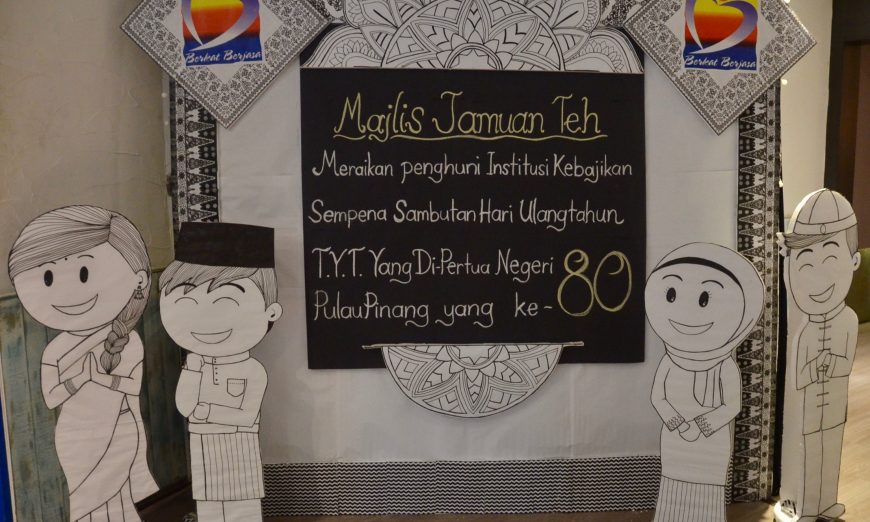 Berkat Berjasa
Berkat Berjasa
Majlis Jamuan Teh
Meraikan penghuni Institusi Kebajikan
Sempena Sambutan Hari Ulangtahun
T.Y.T. Yang Di-Pertua Negeri
Pulau Pinang yang ke-80